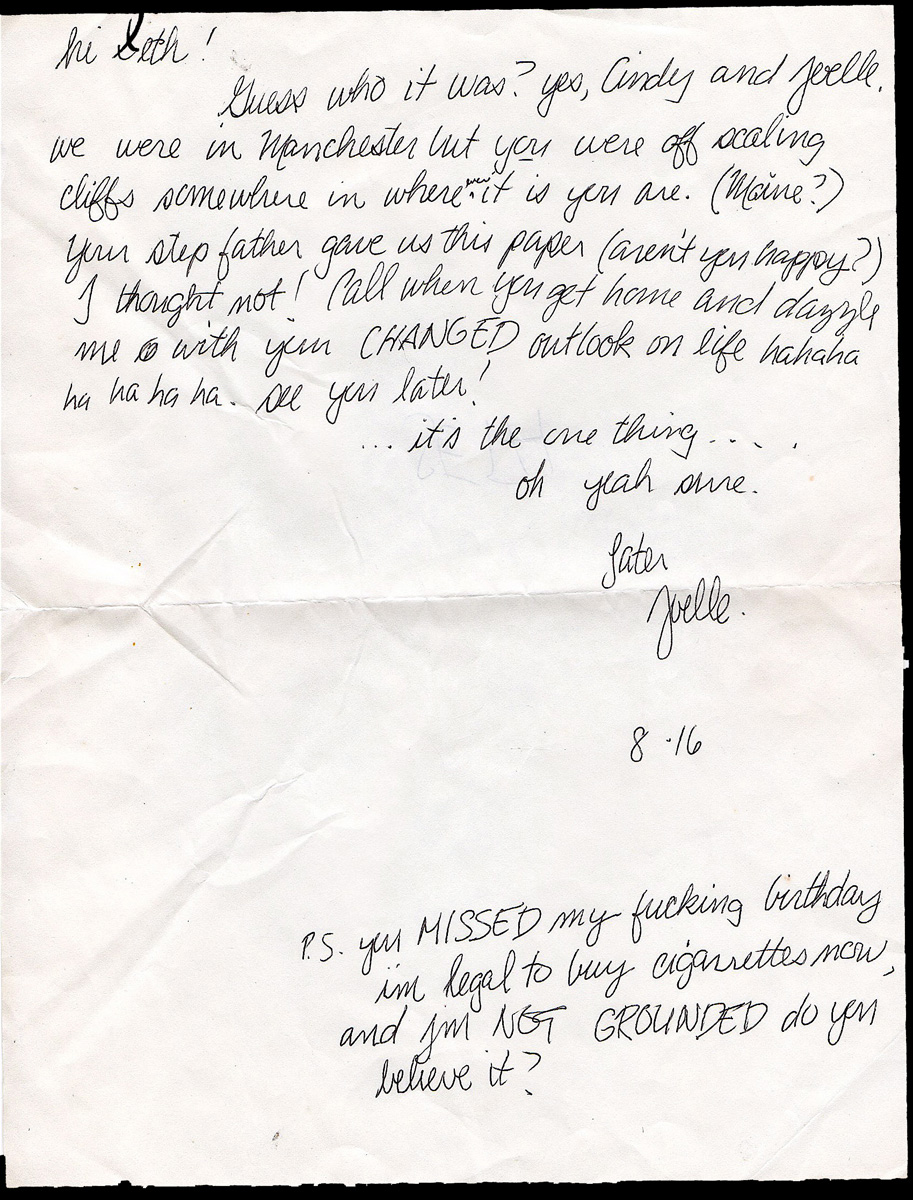 hi Seth!
Guess who it was? yes, Cindy and Joelle.
we were in Manchester but you were off scaling
cliffs somewhere in where ever it is you are. (Maine?)
Your step father gave us this paper (aren't you happy?)
I thought not! Call when you get home and dazzle
me with your CHANGED outlook on life hahaha
ha ha ha ha. see you later!
... it's the one thing.....
oh yeah sure.
Later
Joelle.
8·16
P.S. you MISSED my fucking birthday
i'm legal to buy cigarrettes now,
and I'm NOT GROUNDED do you
believe it?